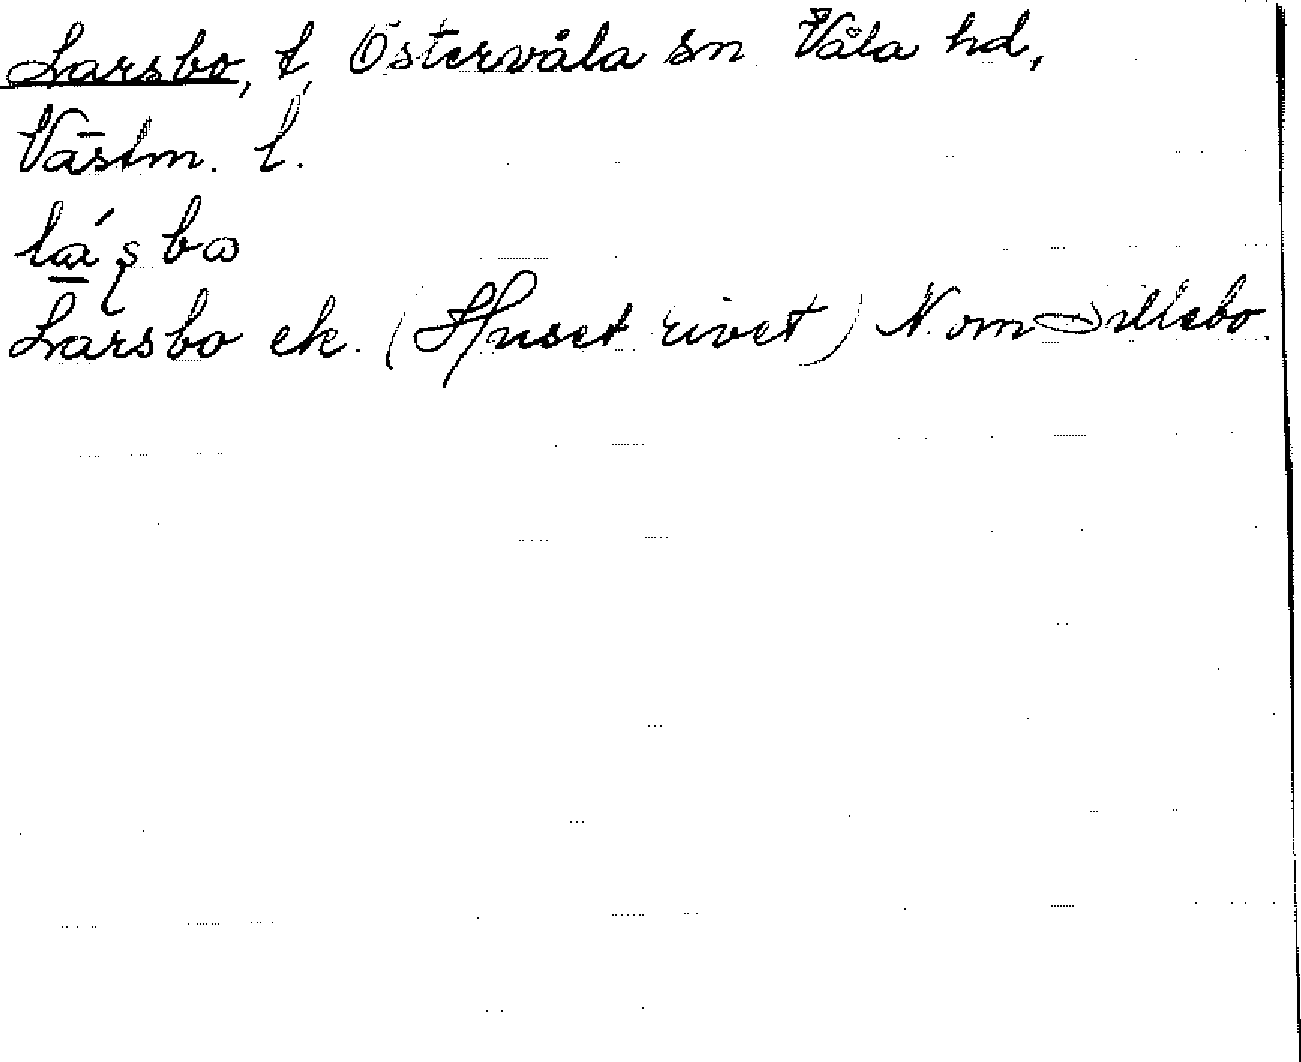 Larsbo, t, Östervåla sn Våla hd,
Västm. l.
Larsbo ek. (Huset rivet) N. om